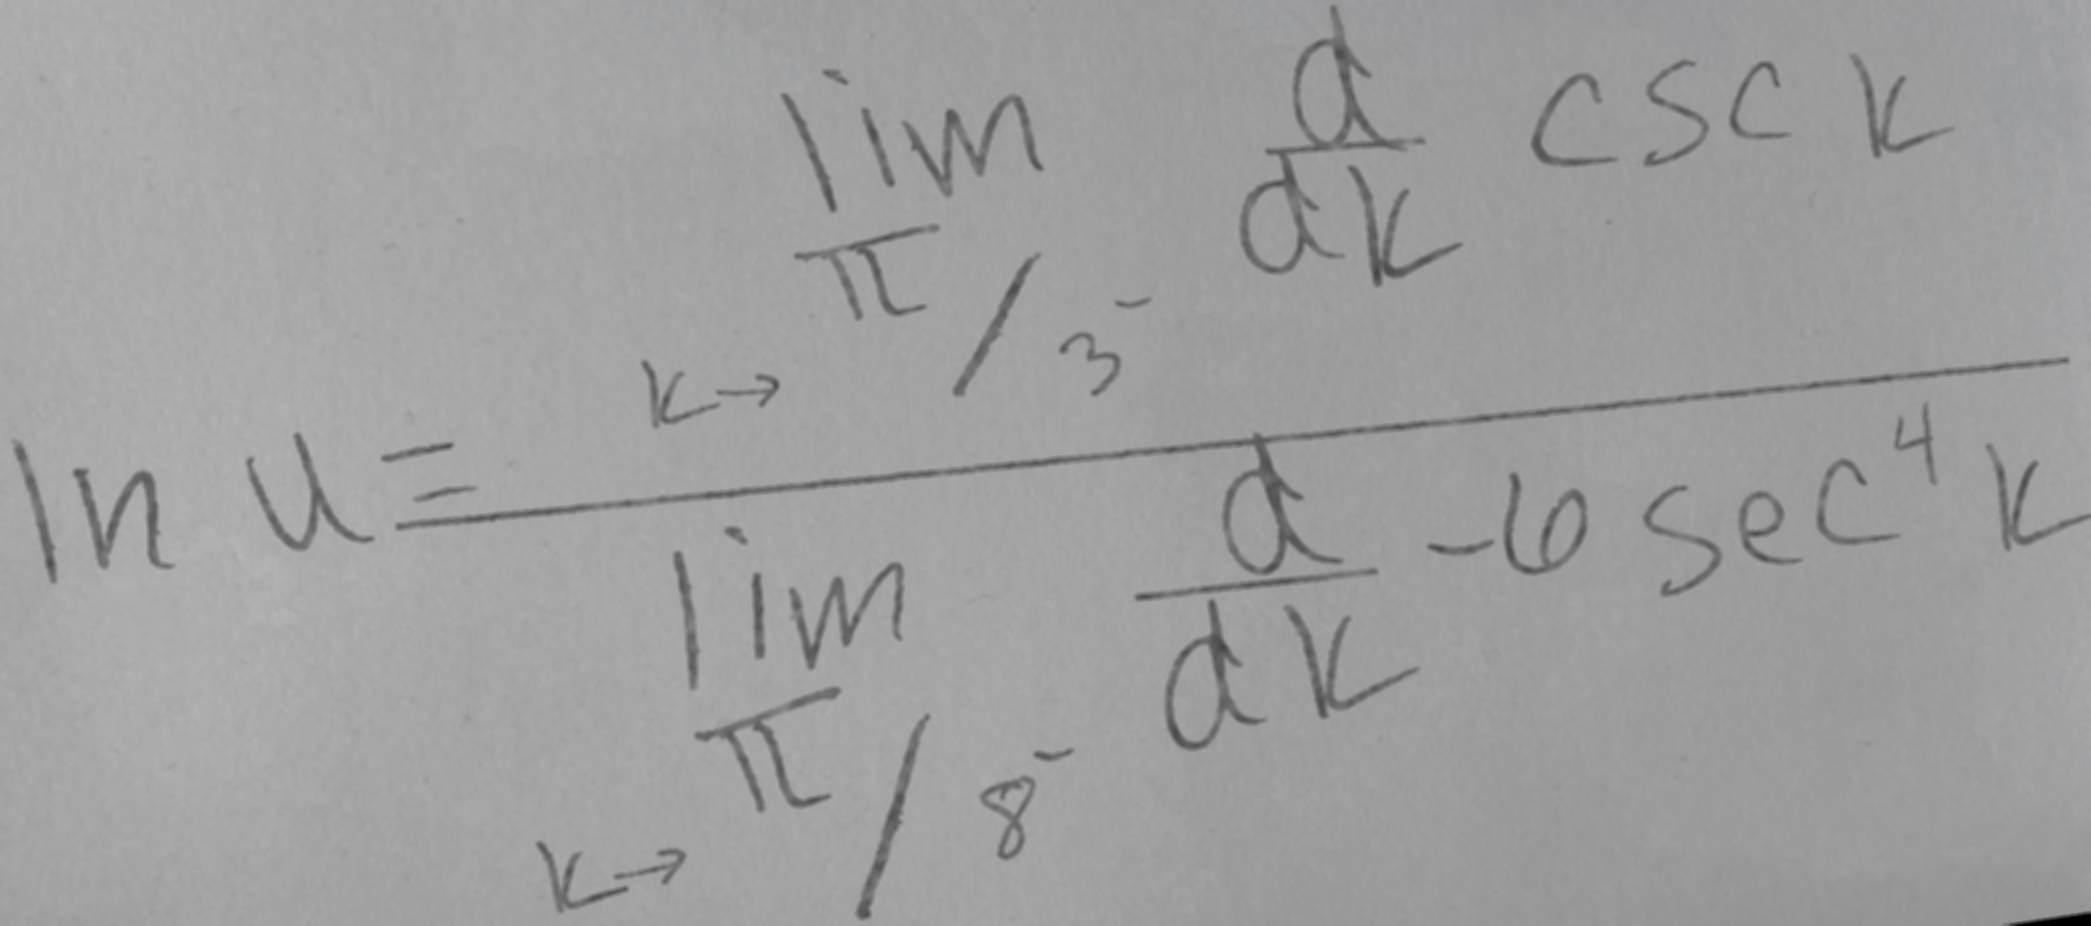 \ln u = \frac{\lim_{k \to \pi/3^-} \frac{d}{dk} \csc k}{\lim_{k \to \pi/8^-} \frac{d}{dk} -6 \sec^4 k}